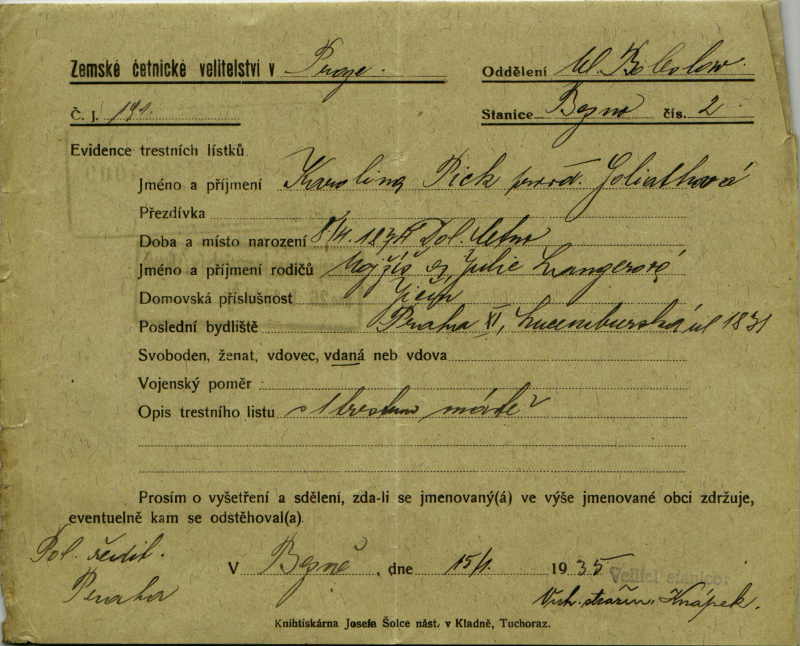 Zemské četnické velitelství v Praze.
Oddělení Ml. Boleslav.
Č. j. 191.
Stanice Bezno čís. 2
Evidence trestních lístků.
Jméno a příjmení Karolina Pick provd. Goliathová
Přezdívka
Doba a místo narození Dol. Cetno
Jméno a příjmení rodičů Mojžíš a Julie Langerová
Domovská příslušnost Jičín
Poslední bydliště Praha XI, Lucemburská ul 1831
Svoboden, ženat, vdovec, vdaná neb vdova
Vojenský poměr
Opis trestního listu
Prosím o vyšetření a sdělení, zda-li se jmenovaný(á) ve výše jmenované obci zdržuje,
eventuelně kam se odstěhoval(a).
Pol. ředit.
Praha
V Bezně, dne 15/1. 1935
Velící stanice:
Vrch. strážm. Knápek.
Knihtiskárna Josefa Šolce nást. v Kladně, Tuchoraz.